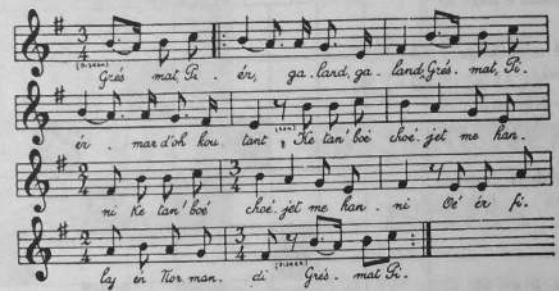 Grés mat, Pi . ér, ga . land, ga . land, Grés . mat, Pi .
ér . mar d'oh kou . tant , Ke tan' boé choé . jet me han .
ni Ke tan' boé choé . jet me han . ni Oé' ér fi .
laj én Nor . man . di Grés . mat Pi .